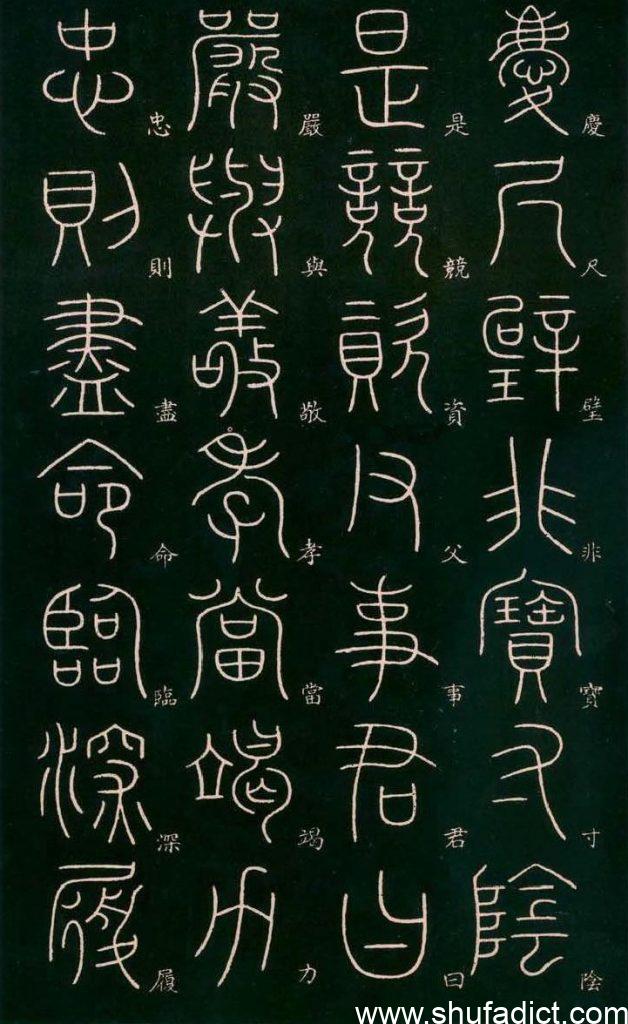 慶尺璧非寶寸陰
是競資父事君曰
嚴與敬孝當竭力
忠則盡命臨深履
www.shufadict.com